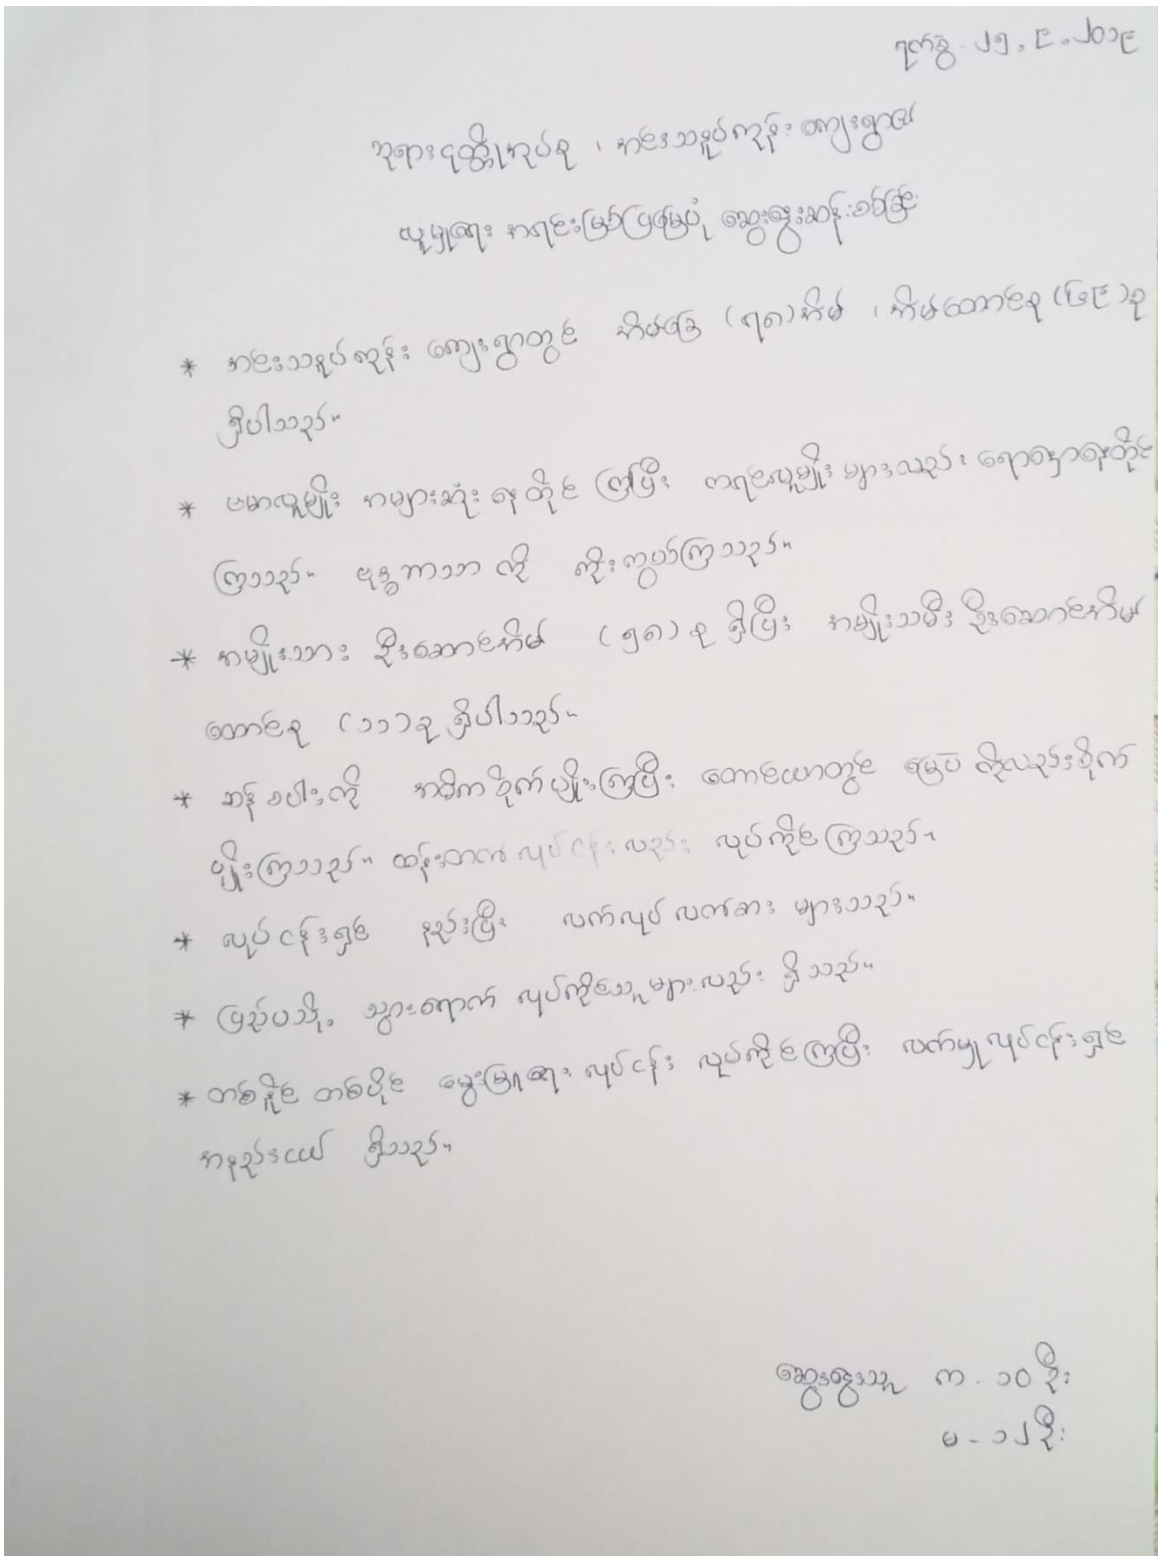 ရက်စွဲ - ၂၅.၉.၂၀၁၉
ဘုရားငုတ္တိုအုပ်စု ၊ အင်းသနပ်ကုန်း ကျေးရွာ၏
လူမှုရေး အရင်းမြစ်ပြမြေပုံ ဆွေးနွေးဆန်းစစ်ခြင်း
* အင်းသနပ်ကုန်း ကျေးရွာတွင် အိမ်ခြေ (၇၈)အိမ် ၊ အိမ်ထောင်စု (၆၉)စု
ရှိပါသည်။
* ဗမာလူမျိုး အများဆုံး နေထိုင် ကြပြီး ကရင်လူမျိုး များလည်း ရောနှောနေထိုင်
ကြသည်။ ဗုဒ္ဓဘာသာ ကို ကိုးကွယ်ကြသည်။
* အမျိုးသား ဦးဆောင်အိမ် (၅၈) စု ရှိပြီး အမျိုးသမီး ဦးဆောင်အိမ်
ထောင်စု (၁၁) စု ရှိပါသည်။
* ဆန်စပါးကို အဓိကစိုက်ပျိုးကြပြီး တောင်ယာတွင် မြေပဲ ကိုလည်းစိုက်
ပျိုးကြသည်။ ထန်းတက်လုပ်ငန်းလည်း လုပ်ကိုင်ကြသည်။
* လုပ်ငန်းရှင် နည်းပြီး လက်လုပ်လက်စား များသည်။
* ပြည်ပသို့ သွားရောက် လုပ်ကိုင်သူများလည်း ရှိသည်။
* တစ်နိုင် တစ်ပိုင် မွေးမြူရေး လုပ်ငန်း လုပ်ကိုင်ကြပြီး လက်မှုလုပ်ငန်းရှင်
အနည်းငယ် ရှိသည်။
ဆွေးနွေးသူ က - ၁၀ ဦး
မ - ၁၂ ဦး